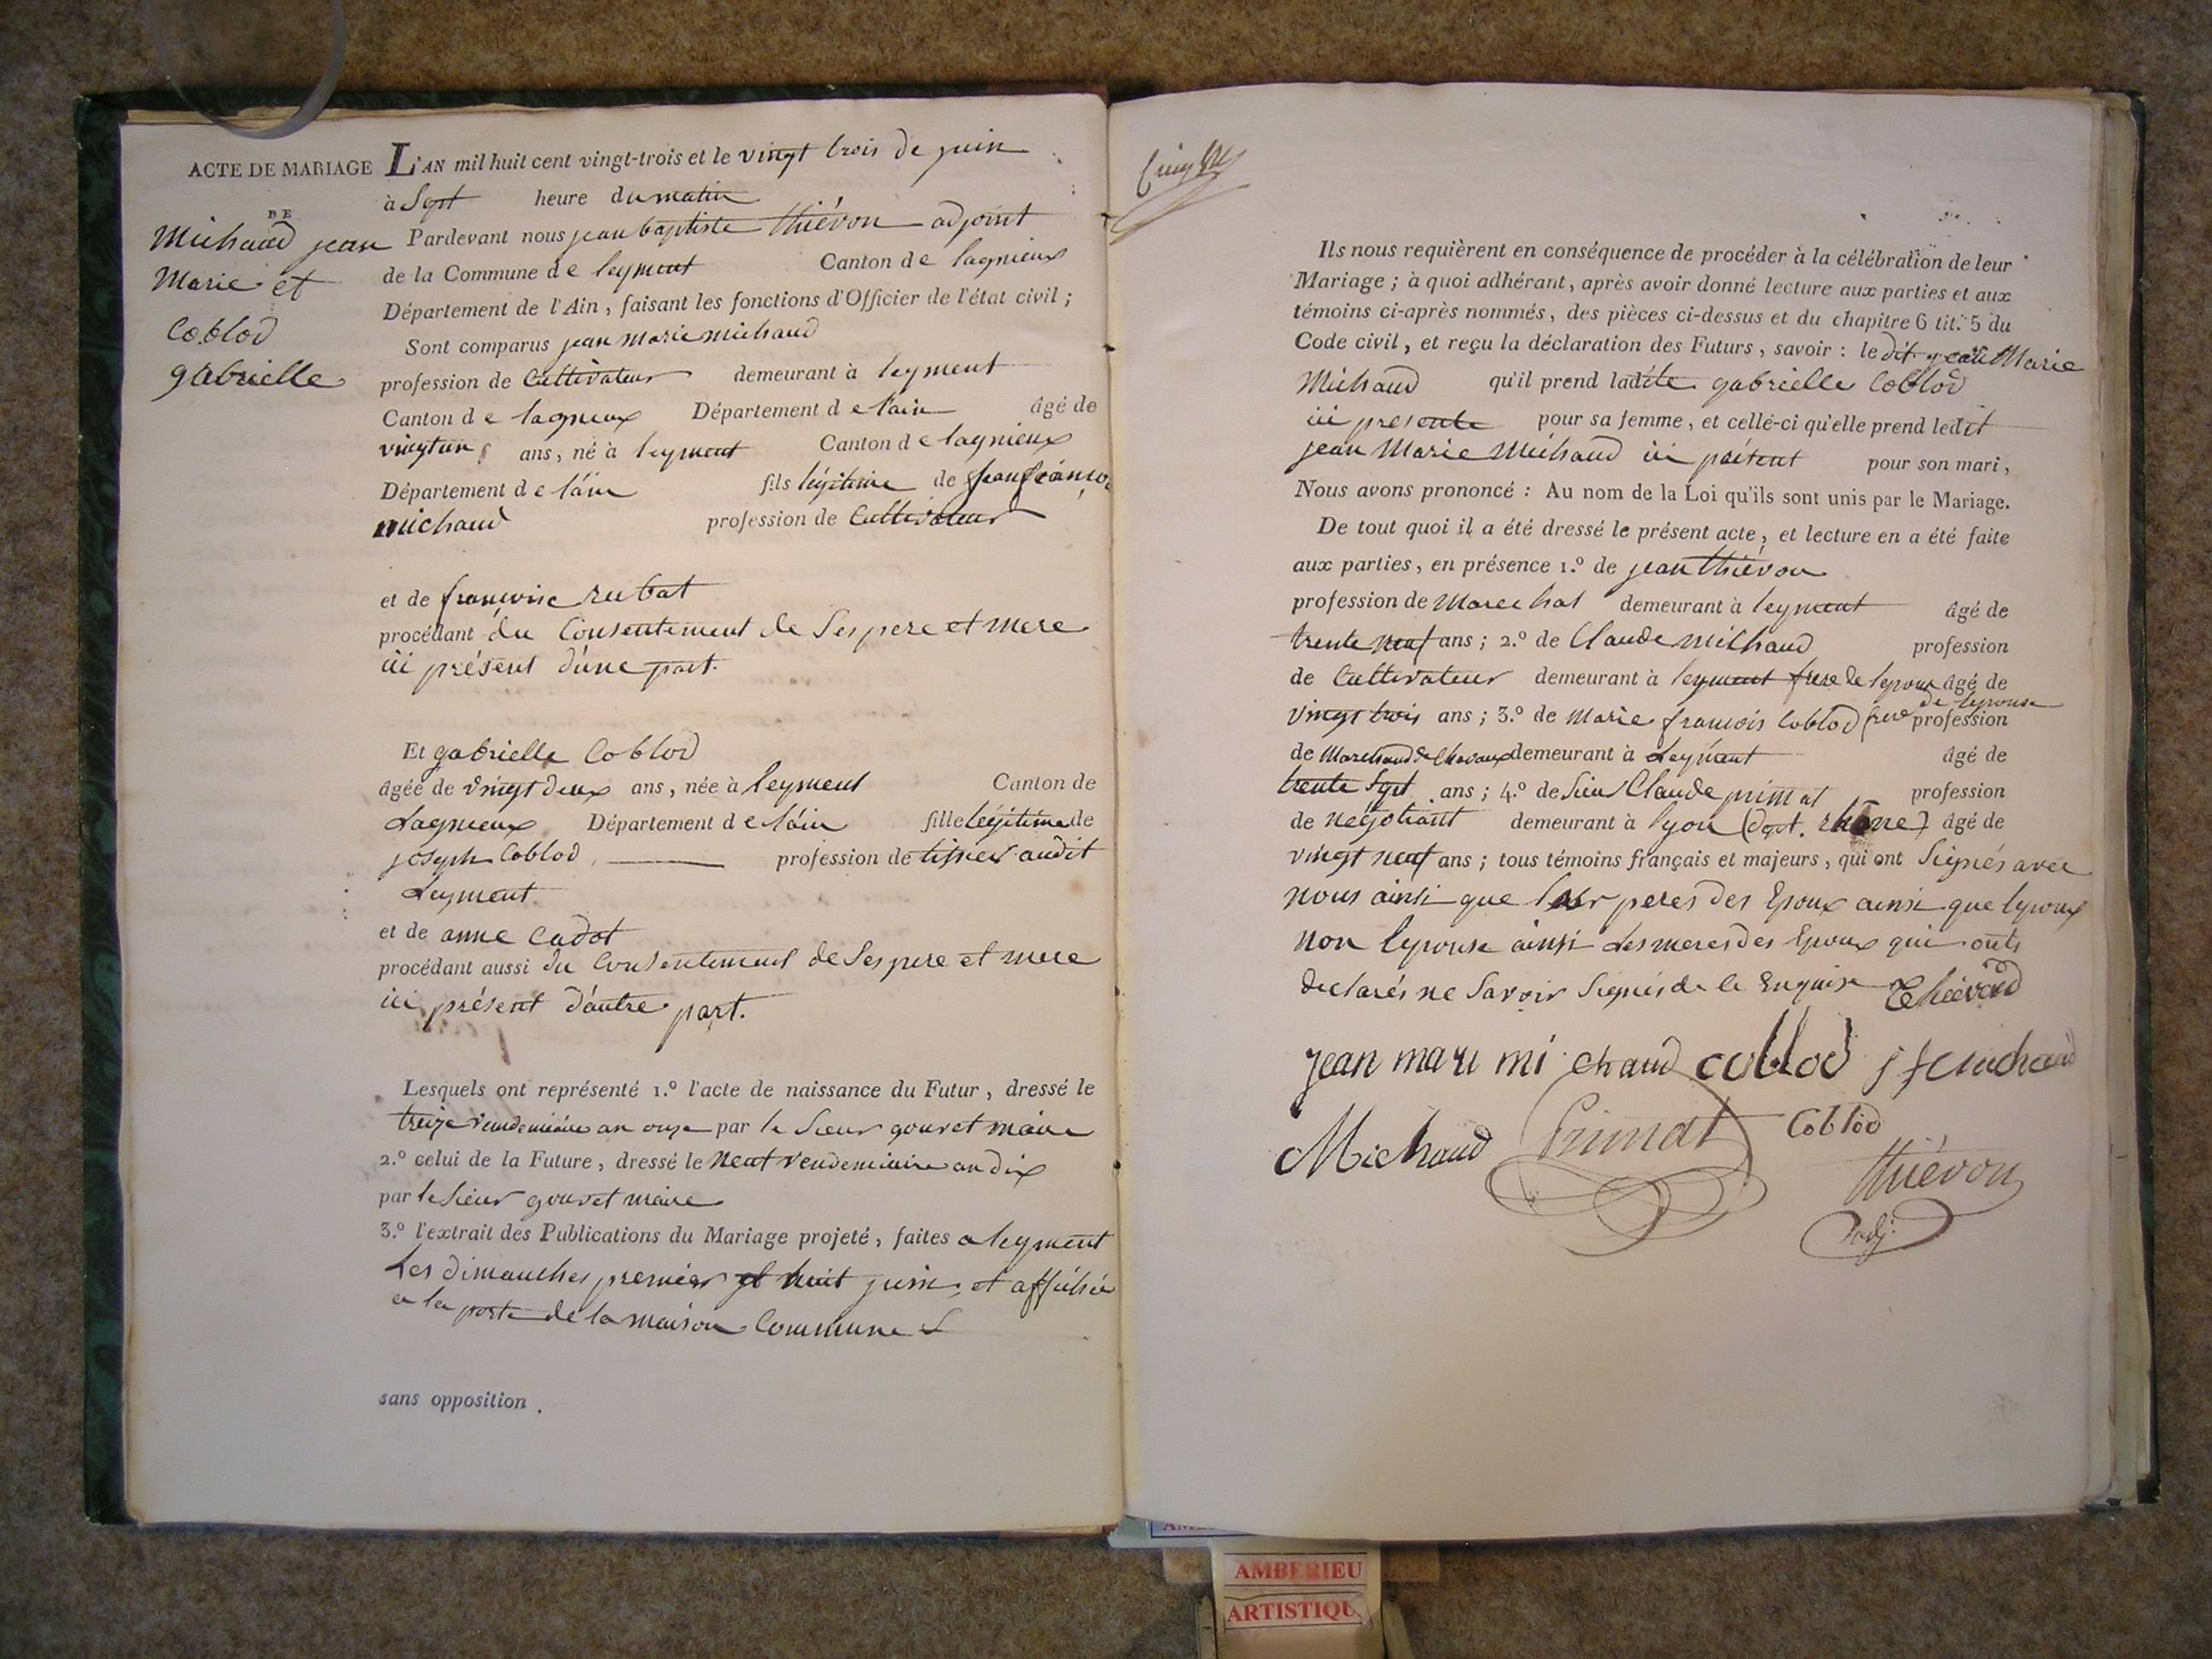 ACTE DE MARIAGE
DE
Michaud jean
Marie et
Coblod
gabrielle
L'AN mil huit cent vingt-trois et le vingt trois de juin
à Sept heure du matin
Pardevant nous jean baptiste thiévon adjoint
de la Commune de leyment Canton de lagnieux
Département de l'Ain, faisant les fonctions d'Officier de l'état civil ;
Sont comparus jean marie michaud
profession de Cultivateur demeurant à leyment
Canton de lagnieux Département de l'ain âgé de
vingt un ans, né à leyment Canton de lagnieux
Département de l'ain fils légitime de jean françois
michaud profession de Cultivateur
et de françoise rubat
procédant du Consentement de Ses pere et mere
ici présent d'une part.
Et gabrielle Coblod
âgée de vingt deux ans, née à leyment Canton de
Lagnieux Département de l'ain fille légitime de
joseph Coblod profession de tissier audit
Leyment
et de anne Cadot
procédant aussi du Consentement de Ses pere et mere
ici présent d'autre part.
Lesquels ont représenté 1.º l'acte de naissance du Futur, dressé le
treize vendemiaire an onze par le Sieur gouvet maire
2.º celui de la Future, dressé le neuf vendemiaire an dix
par le Sieur gouvet maire
3.º l'extrait des Publications du Mariage projeté, faites a leyment
Les dimanches premier et huit juin, et affichée
a la porte de la maison Commune
sans opposition.
Ils nous requièrent en conséquence de procéder à la célébration de leur
Mariage ; à quoi adhérant, après avoir donné lecture aux parties et aux
témoins ci-après nommés, des pièces ci-dessus et du chapitre 6 tit. 5 du
Code civil, et reçu la déclaration des Futurs, savoir : le dit jean Marie
Michaud qu'il prend ladite gabrielle Coblod
ici presente pour sa femme, et celle-ci qu'elle prend ledit
jean Marie Michaud ici présent pour son mari,
Nous avons prononcé : Au nom de la Loi qu'ils sont unis par le Mariage.
De tout quoi il a été dressé le présent acte, et lecture en a été faite
aux parties, en présence 1.º de jean thiévon
profession de Marechal demeurant à leyment âgé de
trente neuf ans ; 2.º de Claude michaud profession
de Cultivateur demeurant à leyment frere de lepoux âgé de
vingt trois ans ; 3.º de Marie françois Coblod frere de lepouse profession
de Marchand de Chevaux demeurant à Leyment âgé de
trente Sept ans ; 4.º de Sieur Claude primat profession
de négotiant demeurant à lyon (dept. rhone) âgé de
vingt neuf ans ; tous témoins français et majeurs, qui ont Signés avec
nous ainsi que leur peres des Epoux ainsi que lepoux
non lepouse ainsi Les meres des Epoux qui onts
declarés ne Savoir Signés de le Enquise Thiévon
jean mari mi chaud coblod j f michaud
Michaud Primat Coblod
thiévon
adj.
AMBERIEU
ARTISTIQU